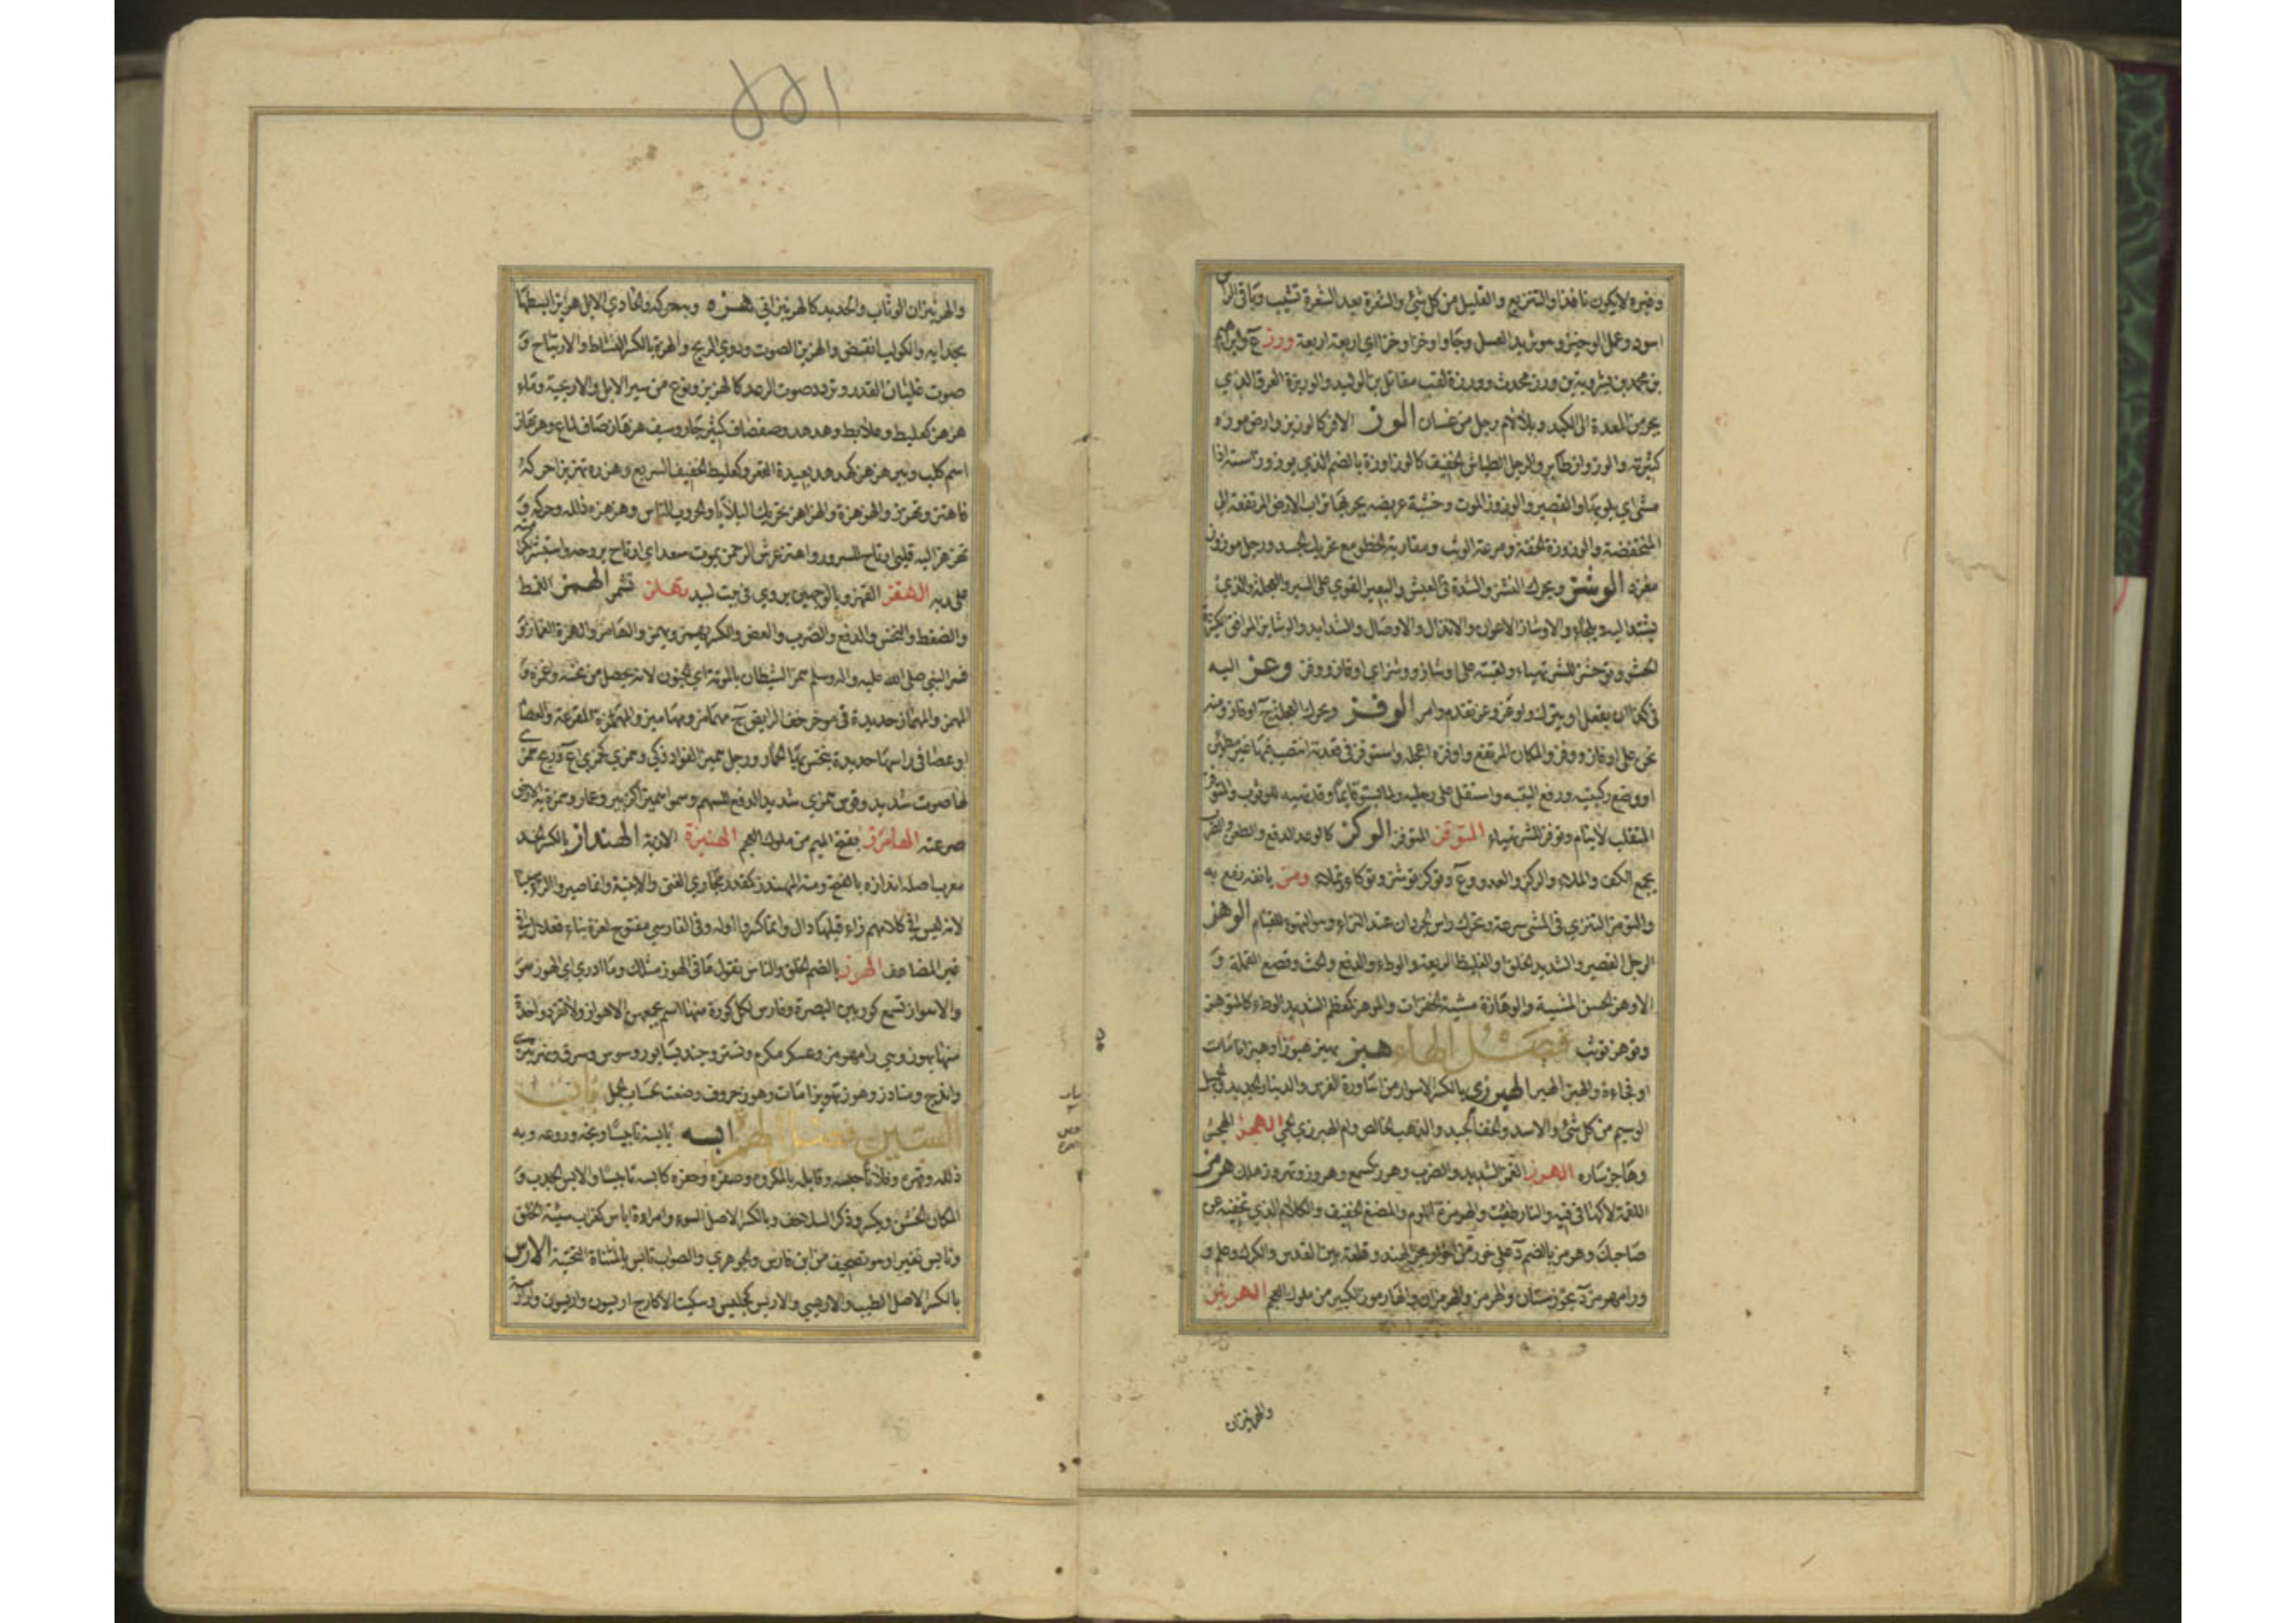 وغيره لا يكون نافذا والتنزيع والقليل من كل شيء والشعرة بعد الشعرة تشيب وباقي الراس
اسود وعمل الوخيز وهو ثريد العسل وجاوا وخزا وخزا اي اربعة اربعة ورز ع وابراهيم
بن محمد بن بشرويه بن ورز محدث وورزة لقب مقاتل بن الوليد والوريزة العرق الذي
يجري من المعدة الى الكبد وبلا لام رجل من غسان الوز الاوز كالوزين وارض موزة
كثيرته والوزواز طاير والرجل الطياش الخفيف كالوزاوزة بالضم الذي يوزوز استه اذا
مشى اي يلويها والقصير والوزوز الموت وخشبة عريضه يجر بها تراب الارض المرتفعة الى
المنخفضة والوزوزة الخفة وسرعة الوثب ومقاربة الخطو مع تحريك الجسد ورجل موزوز
مغرد الوشز ويحرك النشز والشدة في العيش والبعير القوي على السير والعجلة والذي
يستند اليه ويلجاء والاوشاز الاعوان والانذال والاوصال والشدايد والوشايز المرافق الكثيرة
الحشو وتوشز للشر تهياء ولقيته على اوشاز ووشز اي اوفاز ووفز وعز اليه
في كذا ان يفعل او يترك واوعز ووعز تقدم وامر الوفز ويحرك العجلة ج اوفاز ومنه
نحن على اوفاز ووفز والمكان المرتفع واوفزه اعجله واستوفز في قعدته انتصب فيها غير مطمئن
او وضع ركبتيه ورفع اليتيه واستقل على رجليه ولما يستو قايما وقد تهياء للوثوب والمتوفز
المتقلب لا ينام وتوفز للشر تهياء المتوقز المتوفز الوكز كالوعد الدفع والطعن والضرب
بجمع الكف والملاء والركز والعدو وع وتوكز توشز وتوكاء وتملاء ومز بانفه رفع به
والتومز التنزي في المشي سرعة وتحرك راس الجردان عند النزاء وسو التهوء للقيام الوهز
الرجل القصير والشديد الخلق او الغليظ الربعة والوطء والدفع والحث وقصع القملة و
الاوهز الحسن المشية والوهازة مشية الخفرات والموهز كمعظم الشديد الوطء كالمتوهز
وتوهز توثب فصل الهاء هبز يهبز هبوزا وهبزانا مات
او فجاءة والهبز الهبر الهبرزي بالكسر الاسوار من اساورة الفرس والدينار الجديد والجميل
الوسيم من كل شيء والاسد والخف الجيد والذهب الخالص وام الهبرزي الحمى الهجز الهجس
وهاجزه ساره الهرز الغمز الشديد والضرب وهرز كسمع وهروز وتهروز هلك هرمز
اللقمة لاكها في فيه والنار طفئت والهرمزة اللوم والمضغ الخفيف والكلام الذي تخفيه عن
صاحبك وهرمز بالضم د على خور من اخوار بحر الهند وقلعة بين القدس والكرك وعلم و
ورامهرمز د بخوزستان والهرمز والهرمزان والهارموز الكبير من ملوك العجم الهربز
والهربزان
والهرنبزان الوثاب والحديد كالهرنبزاني هزه وبه حركه والحادي الابل هزيزا نشطها
بحدايه والكوكب انقض والهزيز الصوت ودوي الريح والهزة بالكسر النشاط والارتياح و
صوت غليان القدر وتردد صوت الرعد كالهزيز ونوع من سير الابل والاريحية وماء
هزهز كعلبط وعلابط وهدهد وصفصاف كثير جار وسيف هزهاز صاف لماع وهزهاز
اسم كلب وبير هزهز كهدهد بعيدة القعر وكعلبط الخفيف السريع وهززه تهزيزا حركه
فاهتز وتهزز والهزهزة والهزاهز تحريك البلايا والحروب الناس وهزهزه ذلله وحركه و
تهزهز اليه قلبي ارتاح للسرور واهتز عرش الرحمن لموت سعد اي ارتاح بروحه واستبشر لكرامته
على ربه الهقز القهز وبالوجهين يروى في بيت لبيد تهلز تشمر الهمز الغمز
والضغط والنخس والدفع والضرب والعض والكسر يهمز ويهمز والهامز والهمزة الغماز و
فسر النبي صلى الله عليه واله وسلم همز الشيطان بالموتة اي الجنون لانه يحصل من نخسه وغمزه و
المهمز والمهماز حديدة في موخر خف الرايض ج مهامز ومهاميز والمهمزة المقرعة والعصا
او عصا في راسها حديدة ينخس بها الحمار ورجل هميز الفواد ذكي وهمزى كجمزى ع وريح همزى
لها صوت شديد وقوس همزى شديد الدفع للسهم وسموا هميزا كزبير وعمار وهمزت به الارض
صرعته الهامرز بفتح الميم من ملوك العجم الهنيزة الاذية الهنداز بالكسر الحد
معرب اصله اندازه بالفتح ومنه المهندز لمقدر مجاري القنى والابنية وانما صيروا الزاي سينا
لانه ليس في كلامهم زاء قبلها دال وانما كسروا اوله وفي الفارسي مفتوح لعزة بناء فعلال في
غير المضاعف الهوز بالضم الخلق والناس يقول ما في الهوز مثلك وما ادري اي الهوز هو
والاهواز تسع كور بين البصرة وفارس لكل كورة منها اسم يجمعهن الاهواز ولا تفرد واحدة
منها بهوز وهي رامهرمز وعسكر مكرم وتستر وجنديسابور وسوس وسرق ونهرتيرى
وايذج ومناذر وهوز تهويزا مات وهوز حروف وضعت لحساب الجمل باب
السين فصل الهمزة ابسه يابسه تابيسا وبخه وروعه وبه
ذلله وقهره وفلانا حبسه وقابله بالمكروه وصغره وحقره كابسه تابيسا والابس الجدب و
المكان الخشن ويكسر وذكر السلاحف وبالكسر الاصل السوء وامراءة اباس كغراب سيئة الخلق
وتابس تغير او هو تصحيف من ابن فارس والجوهري والصواب تايس بالمثناة التحتية الارس
بالكسر الاصل الطيب والاريسي والاريس كجليس وسكيت الاكار ج اريسون واريسون وارارسة